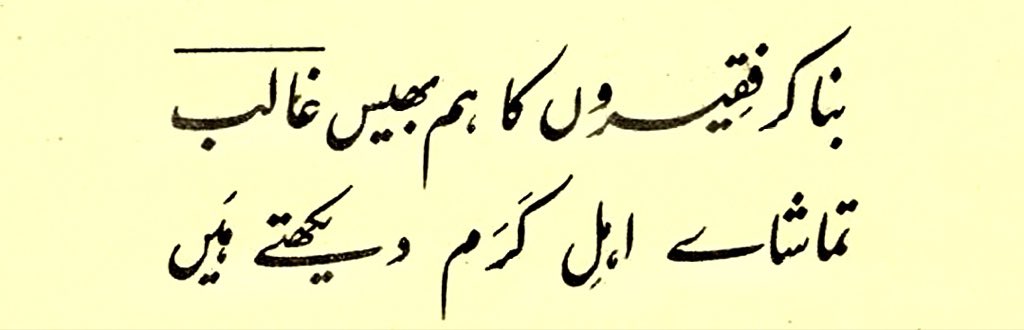 بنا کر فقِیروں کا ہم بھیس غالب
تماشاے اہلِ کَرَم دیکھتے ہَیں